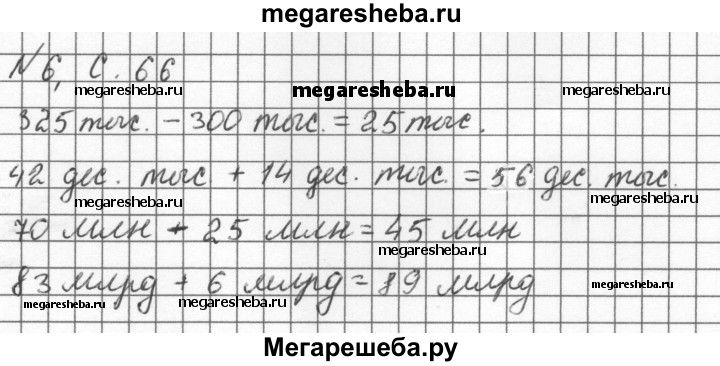 megaresheba.ru
N 6, с. 66
megaresheba.ru megaresheba.ru megaresheba.ru
325 тыс. - 300 тыс. = 25 тыс.
42 дес. тыс. + 14 дес. тыс. = 56 дес. тыс.
megaresheba.ru megaresheba.ru
70 млн + 25 млн = 45 млн
megaresheba.ru
83 млрд + 6 млрд = 89 млрд
megaresheba.ru megaresheba.ru megaresheba.ru
Мегарешеба.ру